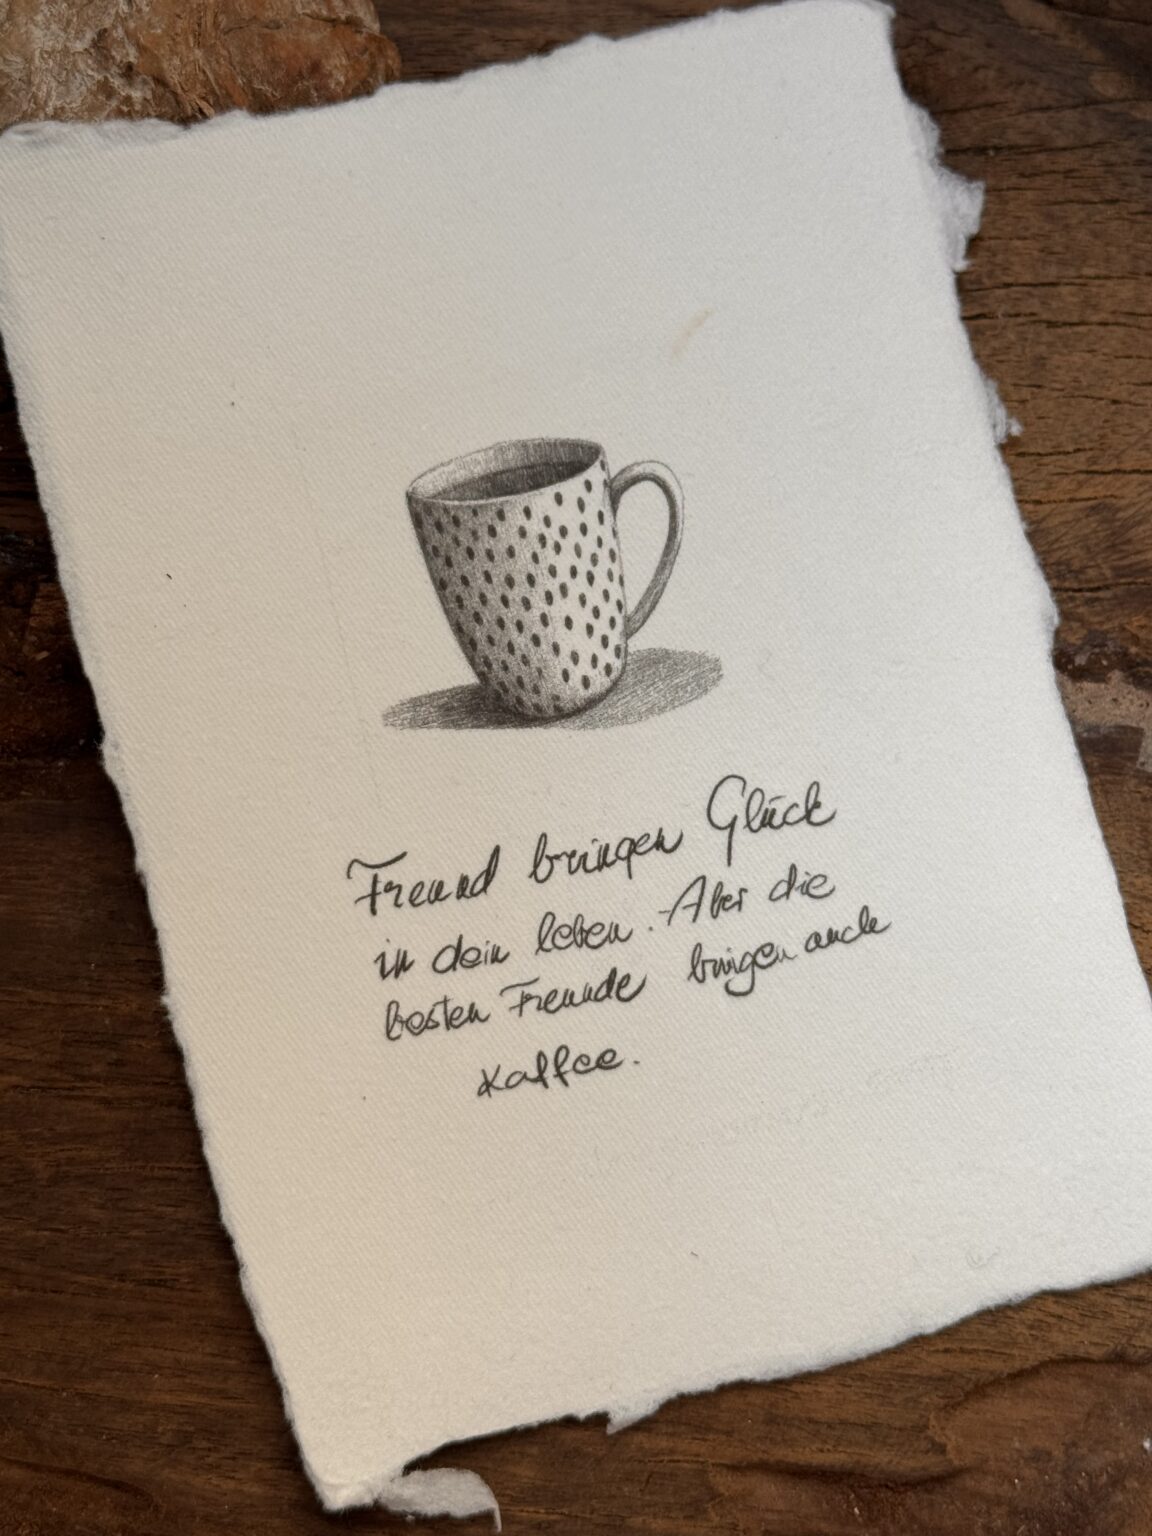 Freund bringen Glück
in dein leben. Aber die
besten Freunde bringen auch
Kaffee.